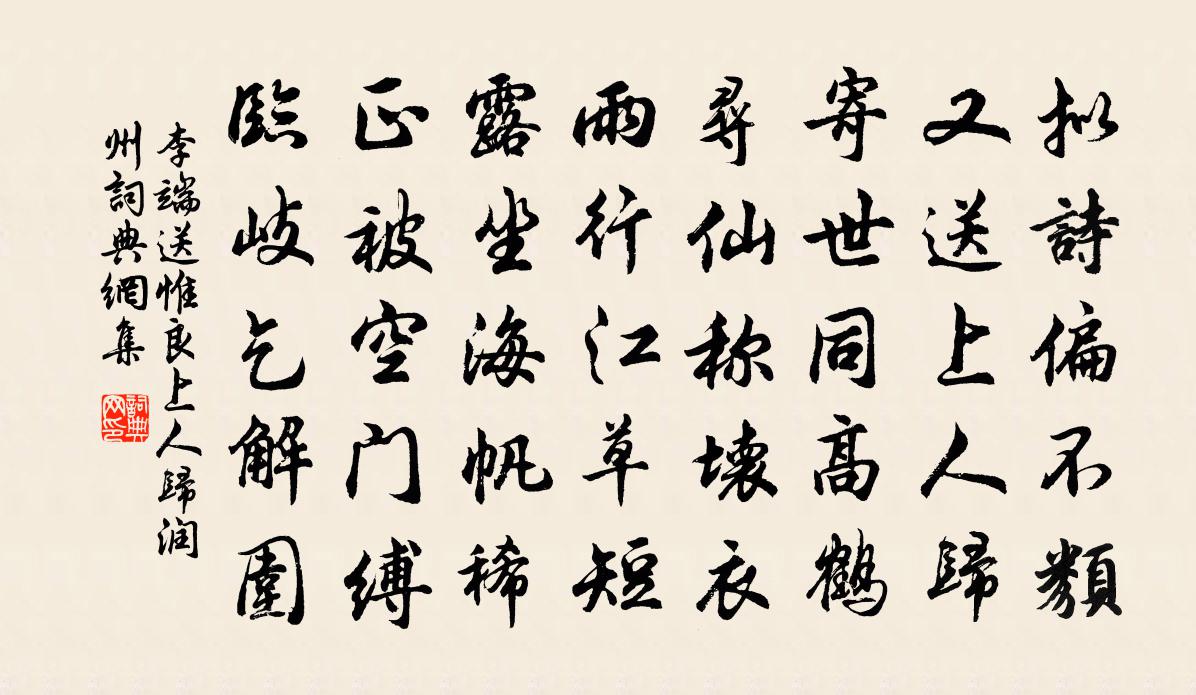 拟詩偏不類
又送上人歸
寄世同髙鶴
尋仙称壞衣
雨行江草短
露坐海帆稀
正被空门縛
臨岐乞解圍
李端送惟良上人歸润
州詞典網集
詞典
网印